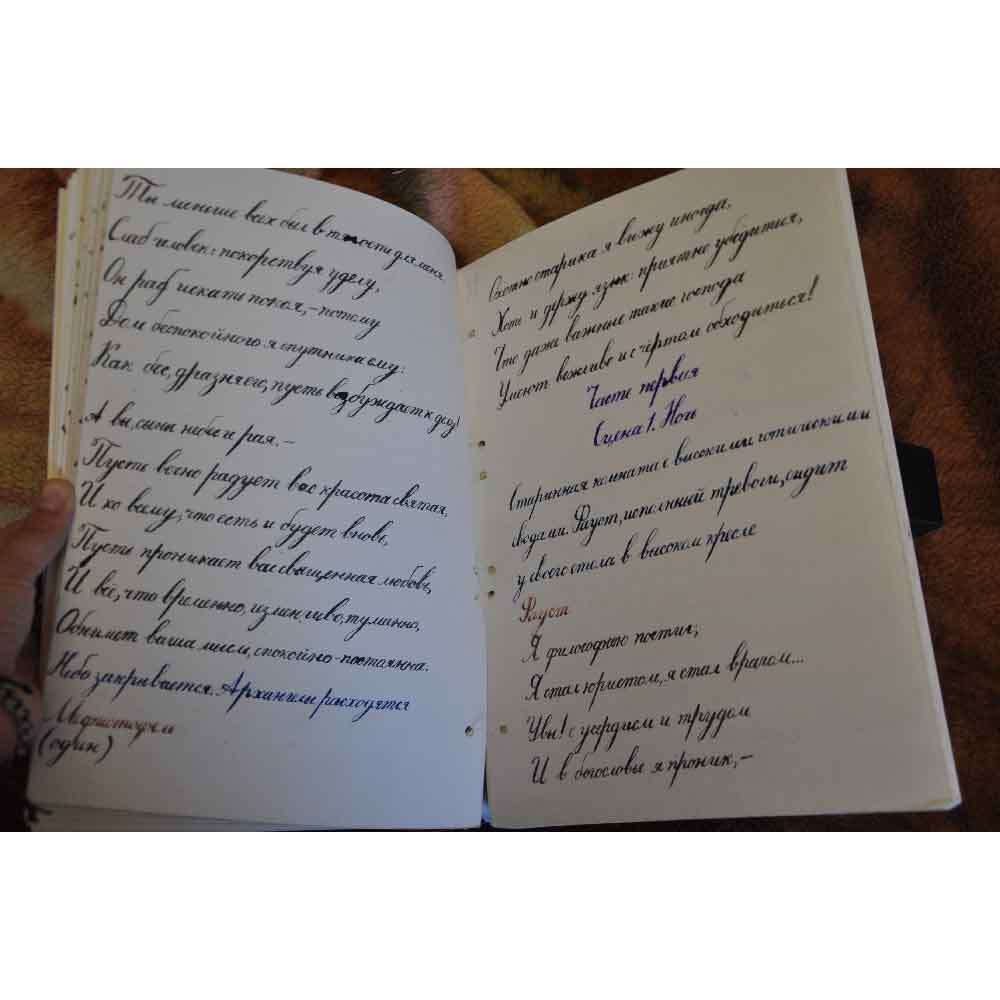 Ты меньше всех был в тягости для меня.
Слаб человек: покорствуя уделу,
Он раб искать покоя, – потому
Дам беспокойного я спутника ему:
Как бес, дразня его, пусть возбуждает к делу!
А вы, сыны небес и рая. –
Пусть вечно радует вас красота святая,
И ко всему, что есть и будет вновь,
Пусть проникает вас священная любовь,
И всё, что временно, изменчиво, туманно,
Обнимет ваша мысль, спокойно-постоянна.
Небо закрывается. Архангелы расходятся
Мефистофель
(один)
Охотно старика я вижу иногда,
Хоть и держу язык: приятно убедиться,
Что даже важные такие господа
Умеют вежливо и с чёртом обходиться!
Часть первая
Сцена 1. Ночь
Старинная комната с высокими готическими
сводами. Фауст, исполненный тревоги, сидит
у своего стола в высоком кресле
Фауст
Я философию постиг,
Я стал юристом, я стал врачом...
Увы! с усердием и трудом
И в богословье я проник, –